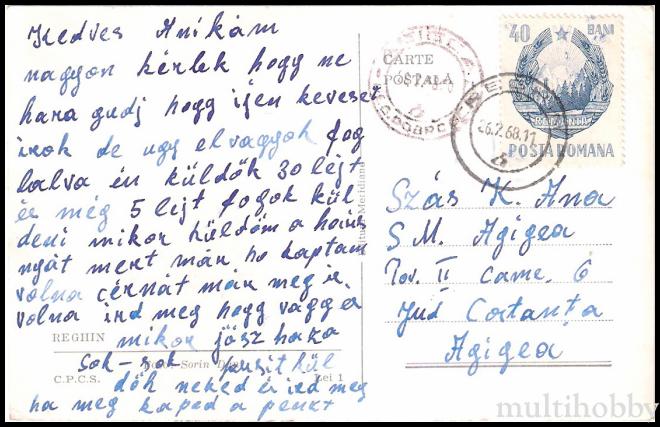 Kedves Anikám
nagyon kérlek hogy ne
haragudj hogy ijen keveset
irok de ugy el vagyok fog
lalva én küldök 30 lejt
és még 5 lejt fogok kül
deni mikor küldöm a haris
nyát mert mán ha kaptam
volna cérnát mán meg is
volna ird meg hogy vagy es
mikor jösz haza
Sok-sok puszit kül
dök neked és ird meg
ha meg kaped a penzt
REGHIN
Foto: Sorin D
C.P.C.S.
Lei 1
Editura Meridiane
CARTE
POSTALĂ
40 BANI
POSTA ROMANA
26.7.68.11
Szás K. Ana
S M. Agigea
Pov. II came. 6
Jud Costanța
Agigea
multihobby